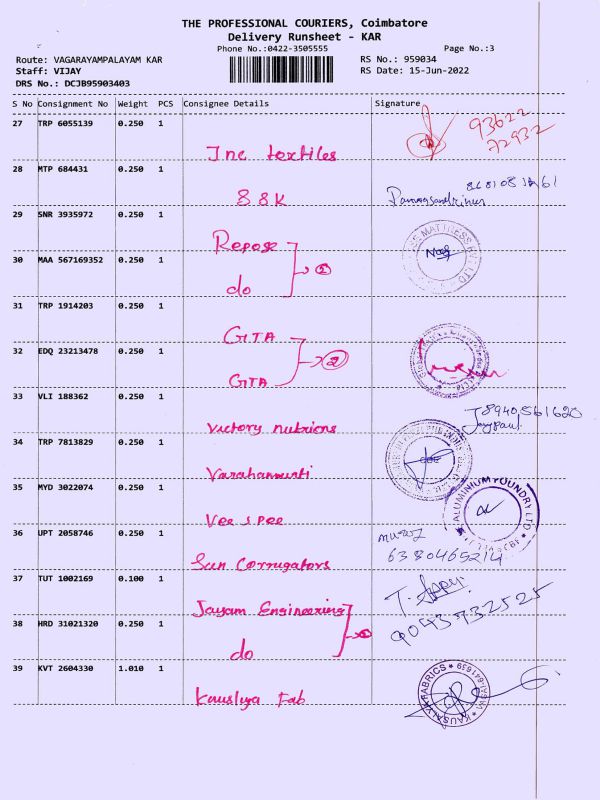 THE PROFESSIONAL COURIERS, Coimbatore
Delivery Runsheet - KAR
Phone No.:0422-3505555
Page No.:3
Route: VAGARAYAMPALAYAM KAR
RS No.: 959034
Staff: VIJAY
RS Date: 15-Jun-2022
DRS No.: DCJB95903403
S No Consignment No Weight PCS Consignee Details Signature
27 TRP 6055139 0.250 1
Inc textiles
93622
72932
28 MTP 684431 0.250 1
88K
29 SNR 3935972 0.250 1
Repose
MATTRESS PVT LTD
30 MAA 567169352 0.250 1
do
2
31 TRP 1914203 0.250 1
GITA
32 EDQ 23213478 0.250 1
GITA
2
33 VLI 188362 0.250 1
Victory nutrions
8940561620
Jaypaul
34 TRP 7813829 0.250 1
Varahamurti
35 MYD 3022074 0.250 1
Vee s pee
ALUMINIUM FOUNDRY LTD
36 UPT 2058746 0.250 1
Sun Corrugators
6380465214
37 TUT 1002169 0.100 1
Jayam Engineering
9043932525
38 HRD 31021320 0.250 1
do
39 KVT 2604330 1.010 1
Kausalya Fab
KAUSALYA FABRICS